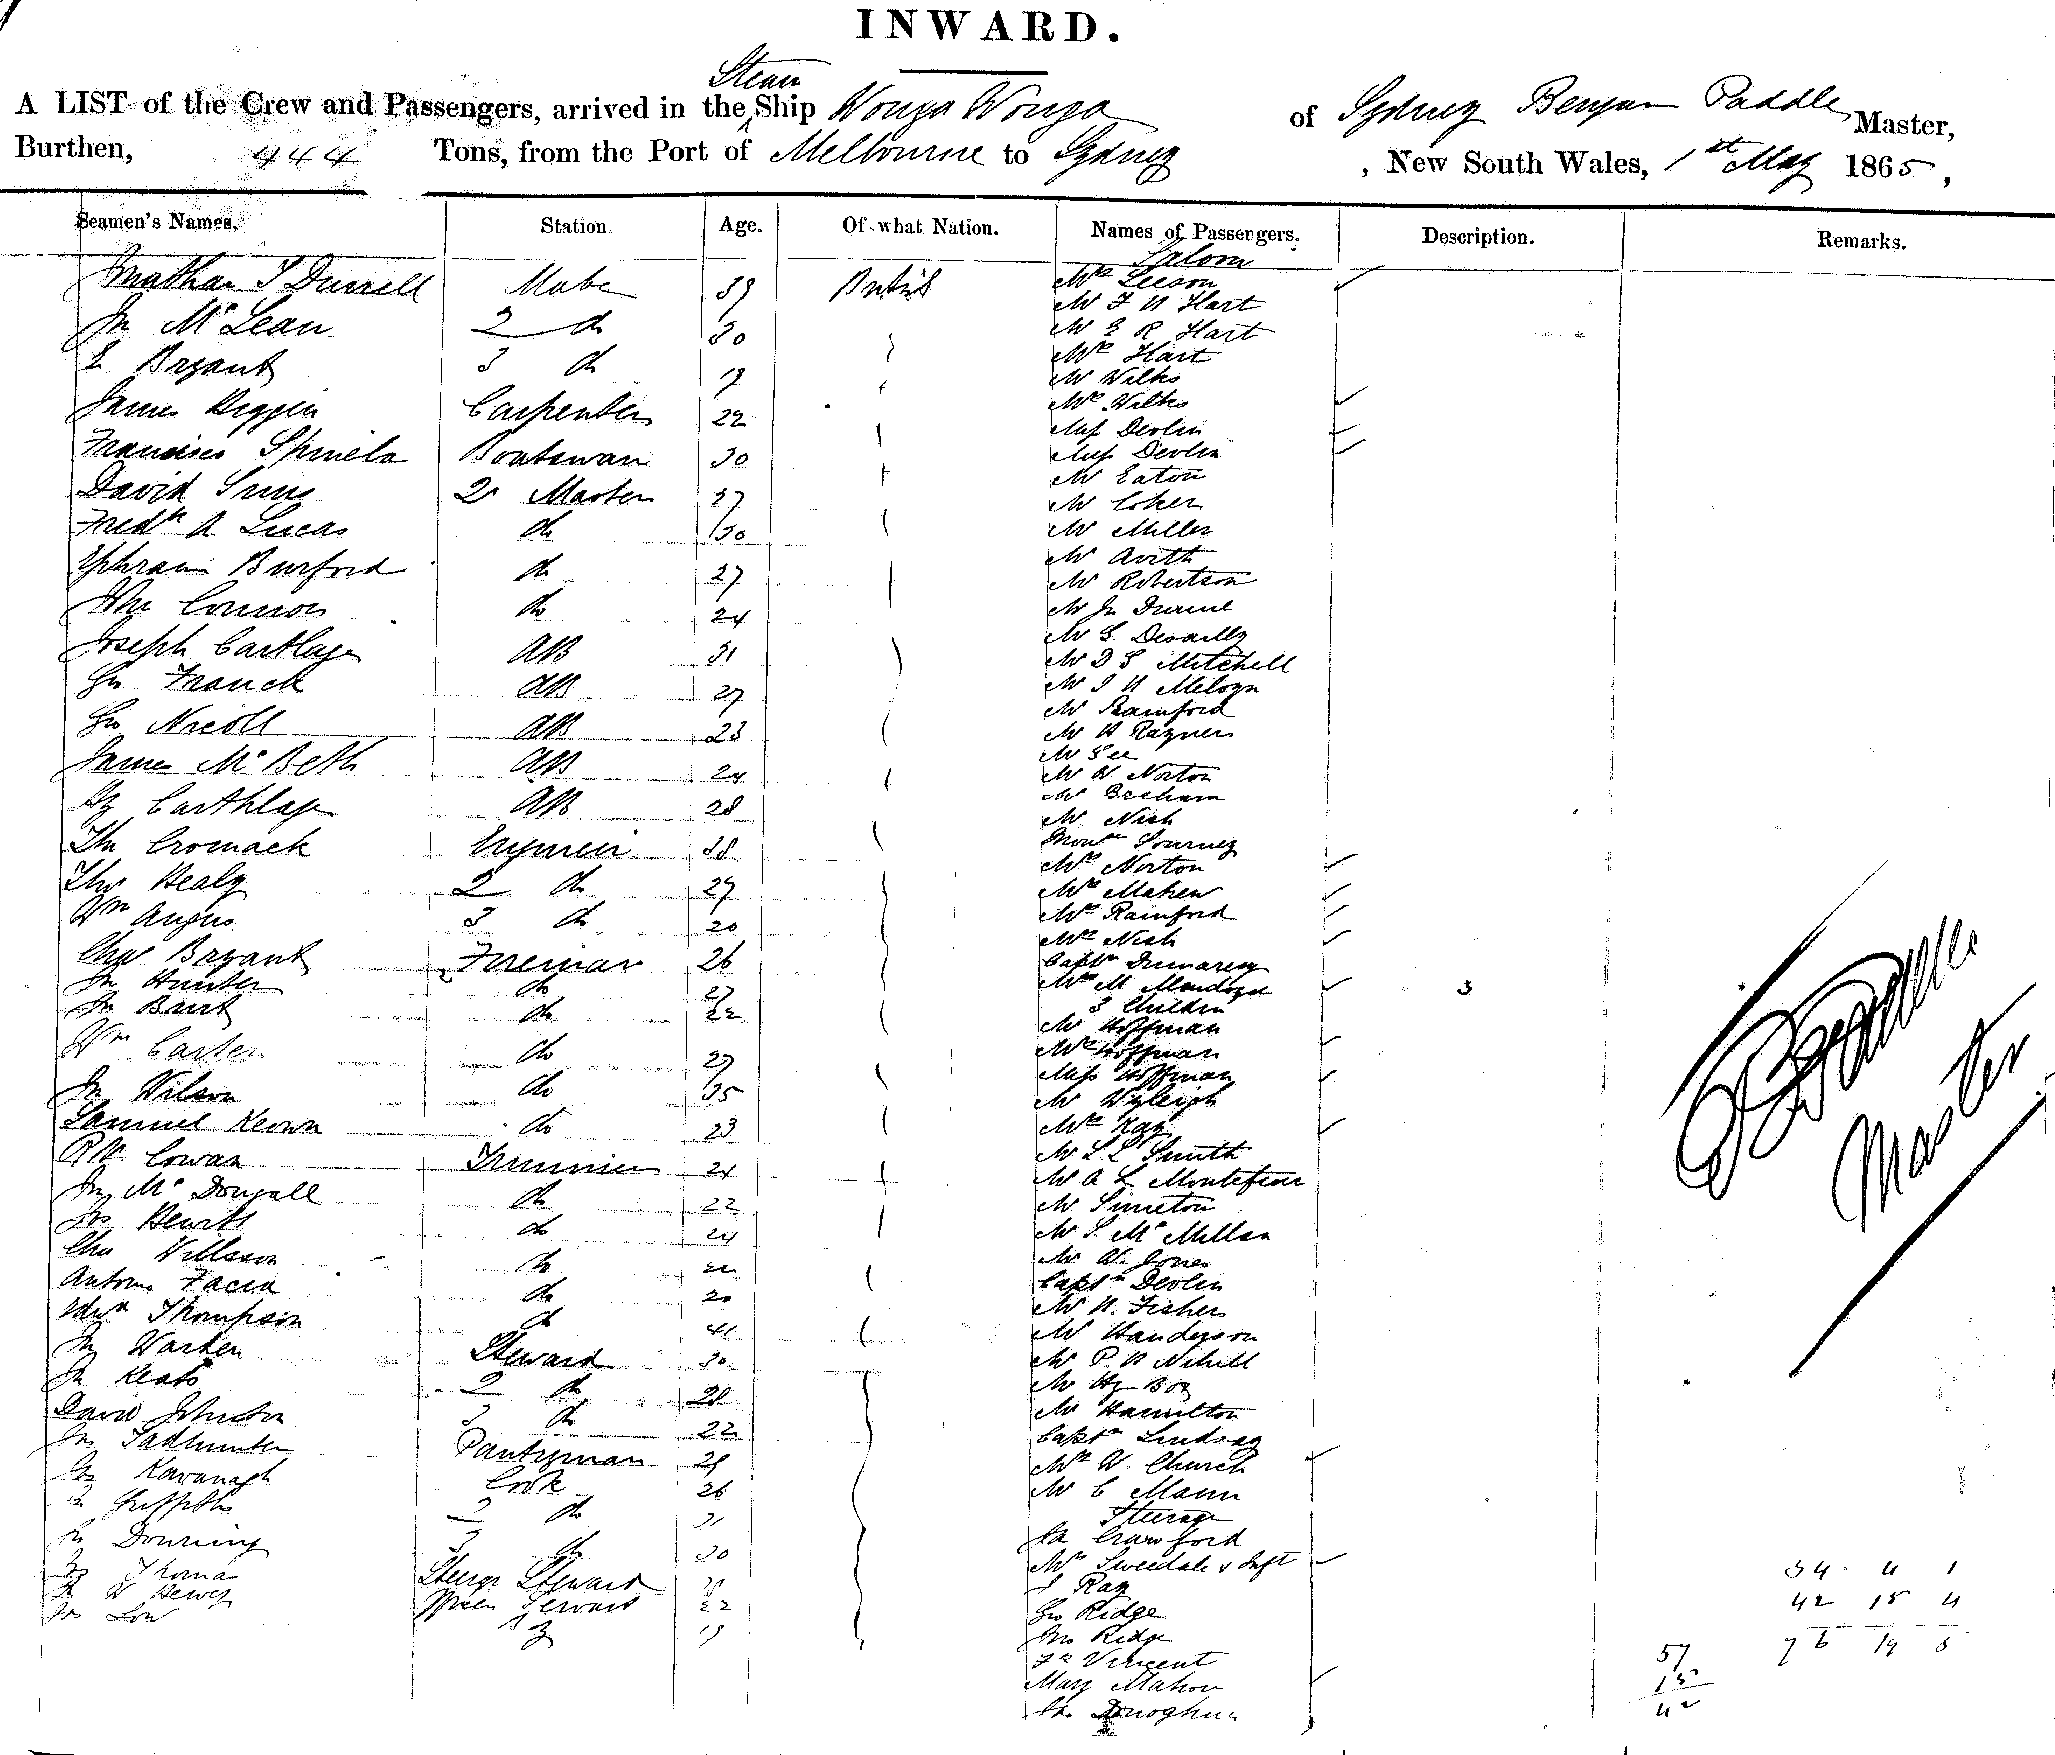 INWARD.
Steam
A LIST of the Crew and Passengers, arrived in the Ship Wonga Wonga of Sydney Benjan Paddle Master,
Burthen, 444 Tons, from the Port of Melbourne to Sydney, New South Wales, 1st May 1865,
Seamen's Names. Station. Age. Of what Nation. Names of Passengers. Description. Remarks.
Saloon
Jonathan T Durrell Mate 39 British Mrs Leeson
Mr F H Hart
Jn McLean 2 do 30 Mr E R Hart
Mrs Hart
E Bryant 3 do 19 Mr Wilks
James Higgin Carpenter 22 Mrs Wilks
Miss Devlin
Francisco Spinela Boatswan 30 Miss Devlin
Mr Eaton
David Sims Qr Master 37 Mr Coker
Fredk A Lucas do 30 Mr Miller
Mr
Ephraim Burford do 27 Mr Robertson
Wm Connor do 24 Mr Jn
Mr S
Joseph Carthage AB 31 Mr D S Mitchell
Jn Franck AB 27 Mr
Mr Rainford
Jno Nicoll AB 23 Mr H Rayner
Mr Gee
James McBeth AB 24 Mr W Norton
Mr Beeham
Hy Carthlage AB 28 Mr Nish
Thos Cromack Engineer 38
Mrs Norton
Thos Healy 2 do 27 Mrs Maher
Wm Angus 3 do 20 Mrs Rainford
Mrs Nish
Chas Bryant Fireman 26 Captn Dumaresq
Jn Hunter do 27 Mrs M
3 Children 3
Jn Bant do 22 Mr Hoffman
Wm Carter do 27 Mrs Hoffman
Miss Hoffman
Jn Wilson do 35 Mr Wyleigh
Samuel Keown do 23 Mrs Kay
Mr L L Smith
RW Cowan Trimmer 24 Mr A L Montefiore
Jn McDougall do 22 Mr Simeton
Jas Hewitt do 24 Mr S. McMillan
Chas Willsson do 22 Mr W. Jones
Antonio Facia do 20 Captn Devlin
Mr H. Fisher
Edwd Thompson do 41 Mr Handerson
Jn Warden Steward 30 Mr P H Nihill
Jn Keats 2 do 28 Mr Hy Box
Mr Hamilton
David Johnston 3 do 22 Captn Lindsay
Jn Tadhunter Pantryman 29 Mrs W. Church
Jn Kavanagh Cook 26 Mr C Mann
Steerage
Griffiths 2 do 31 Crawford
Downing 3 do 30 Mrs Sweedale & Inft
Thomas Steerge Steward Ray
H Hewey Servant 22 Jno Ridge
Jn Low 19 Jno Ridge
Vincent
Mary Mahon
Donoghue
34 4 1
42 15 4
76 19 5
57
15
42
Master